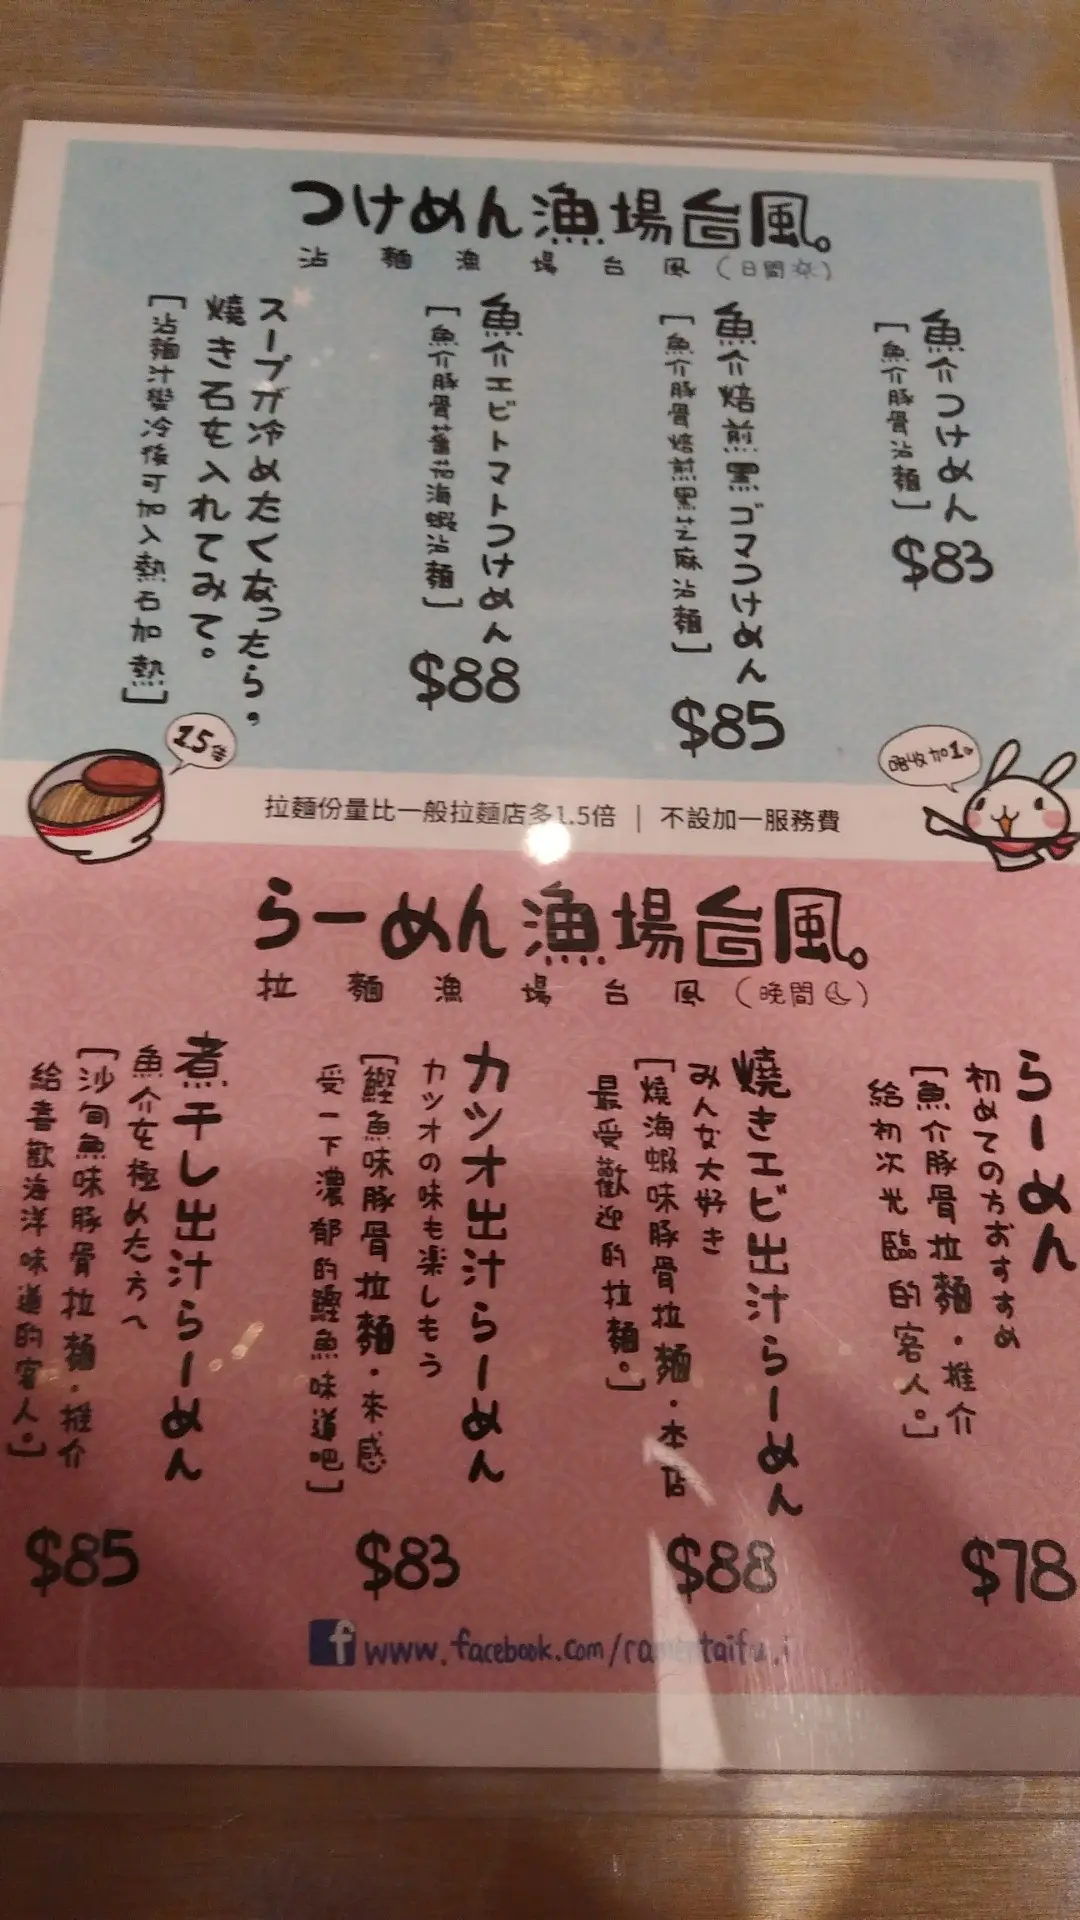 つけめん漁場台風。
沾麵漁場台風(日間)
魚介つけめん
[魚介豚骨沾麵]
$83
魚介焙煎黒ゴマつけめん
[魚介豚骨焙煎黑芝麻沾麵]
$85
魚介エビトマトつけめん
[魚介豚骨蕃茄海蝦沾麵]
$88
スープが冷めたくなったら,
燒き石を入れてみて。
[沾麵汁變冷後可加入熱石加熱]
1.5倍
唔收加1
拉麵份量比一般拉麵店多1.5倍 | 不設加一服務費
らーめん漁場台風。
拉麵漁場台風(晚間)
らーめん
初めての方おすすめ
[魚介豚骨拉麵・推介
給初次光臨的客人。]
$78
燒きエビ出汁らーめん
みんな大好き
[燒海蝦味豚骨拉麵・本店
最受歡迎的拉麵。]
$88
カツオ出汁らーめん
カツオの味も楽しもう
[鰹魚味豚骨拉麵・來感
受一下濃郁的鰹魚味道吧]
$83
煮干し出汁らーめん
魚介を極めた方へ
[沙甸魚味豚骨拉麵・推介
給喜歡海洋味道的客人。]
$85
f